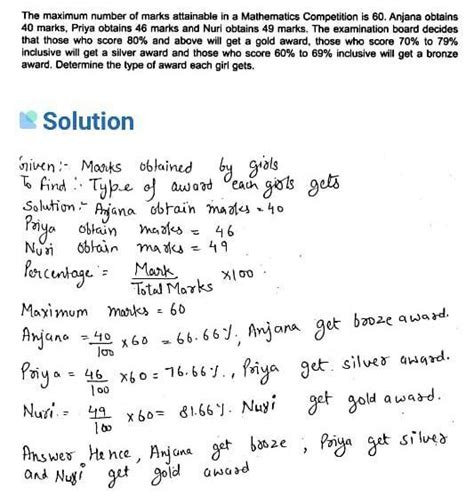 The maximum number of marks attainable in a Mathematics Competition is 60. Anjana obtains
40 marks, Priya obtains 46 marks and Nuri obtains 49 marks. The examination board decides
that those who score 80% and above will get a gold award, those who score 70% to 79%
inclusive will get a silver award and those who score 60% to 69% inclusive will get a bronze
award. Determine the type of award each girl gets.
Solution
Given :- Marks obtained by girls
To find :- Type of award each girls gets
Solution :- Anjana obtain marks = 40
Priya obtain marks = 46
Nuri obtain marks = 49
Percentage = Mark / Total Marks × 100
Maximum marks = 60
Anjana = 40/100 × 60 = 66.66%, Anjana get booze award.
Priya = 46/100 × 60 = 76.66%, Priya get silver award.
Nuri = 49/100 × 60 = 81.66%. Nuri get gold award.
Answer Hence, Anjana get booze, Priya get silver
and Nuri get gold award